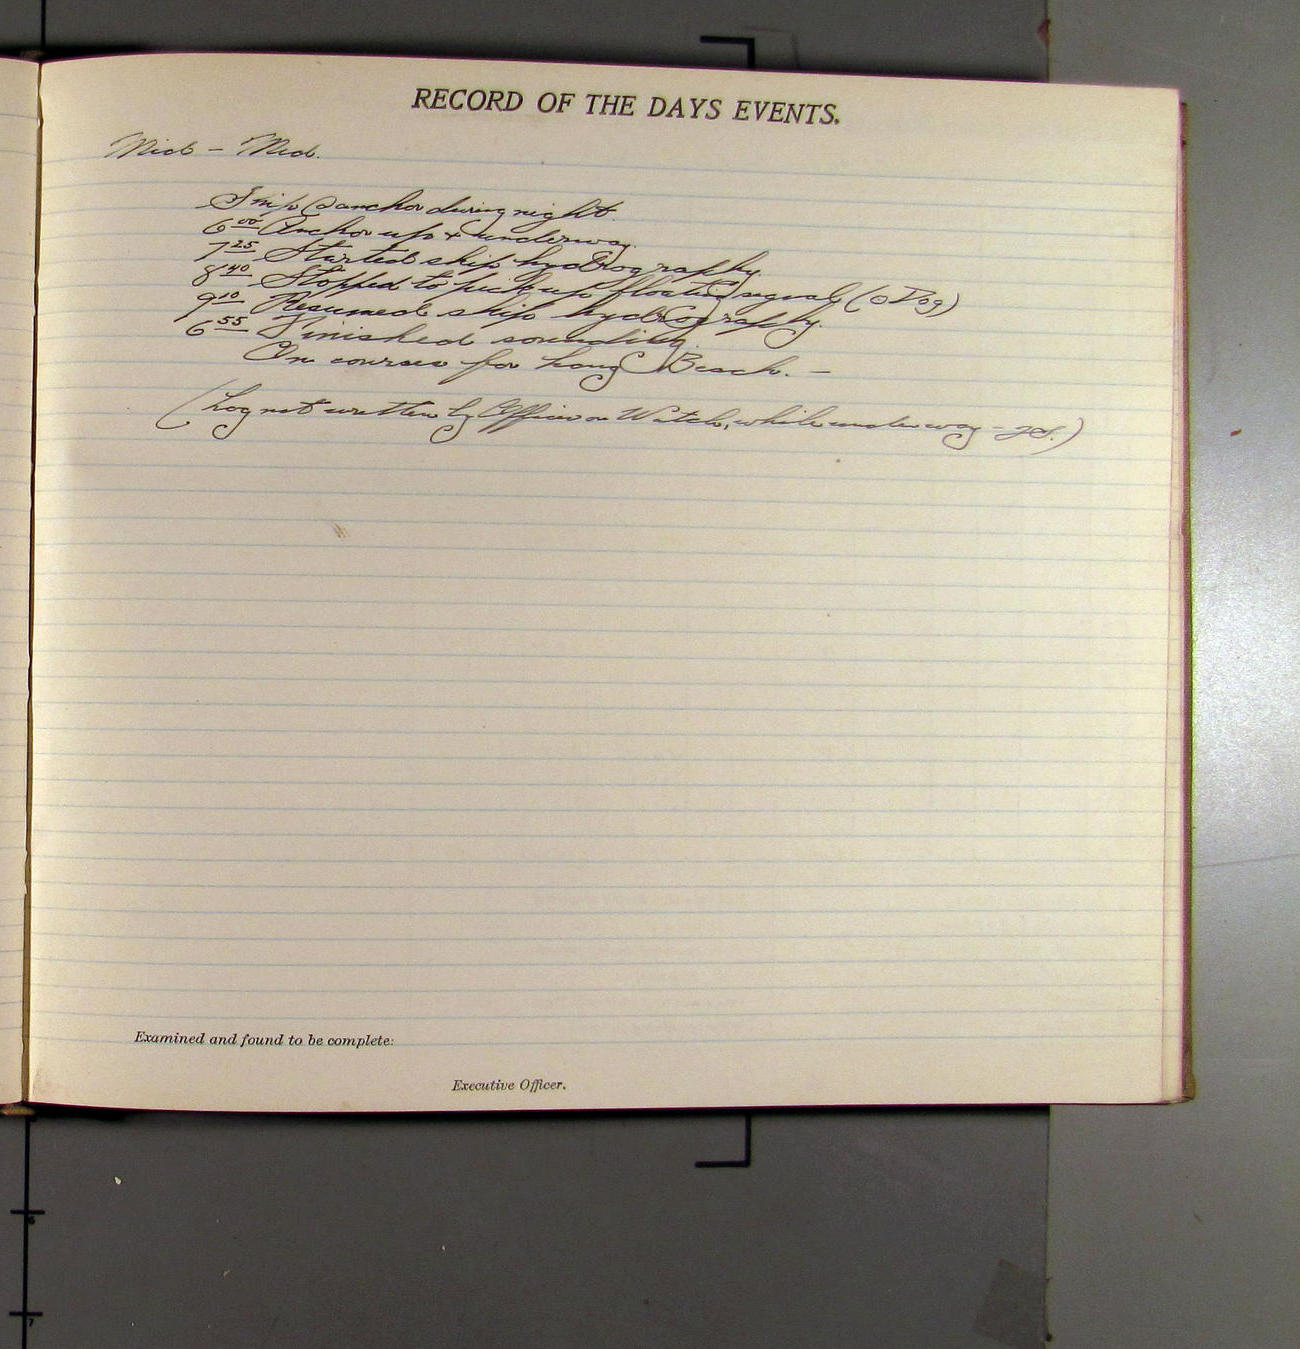 RECORD OF THE DAYS EVENTS.
Mid - Mid.
Ship @ anchor during night.
6 00 Anchor up & underway.
7 25 Started ship hydrography.
8 40 Stopped to pick up floating signal (⊙ Dog)
9 10 Resumed ship hydrography.
6 55 Finished sounding.
On courses for Long Beach. —
(Log not written by Officer on Watch, while underway -
Examined and found to be complete:
Executive Officer.
6
7